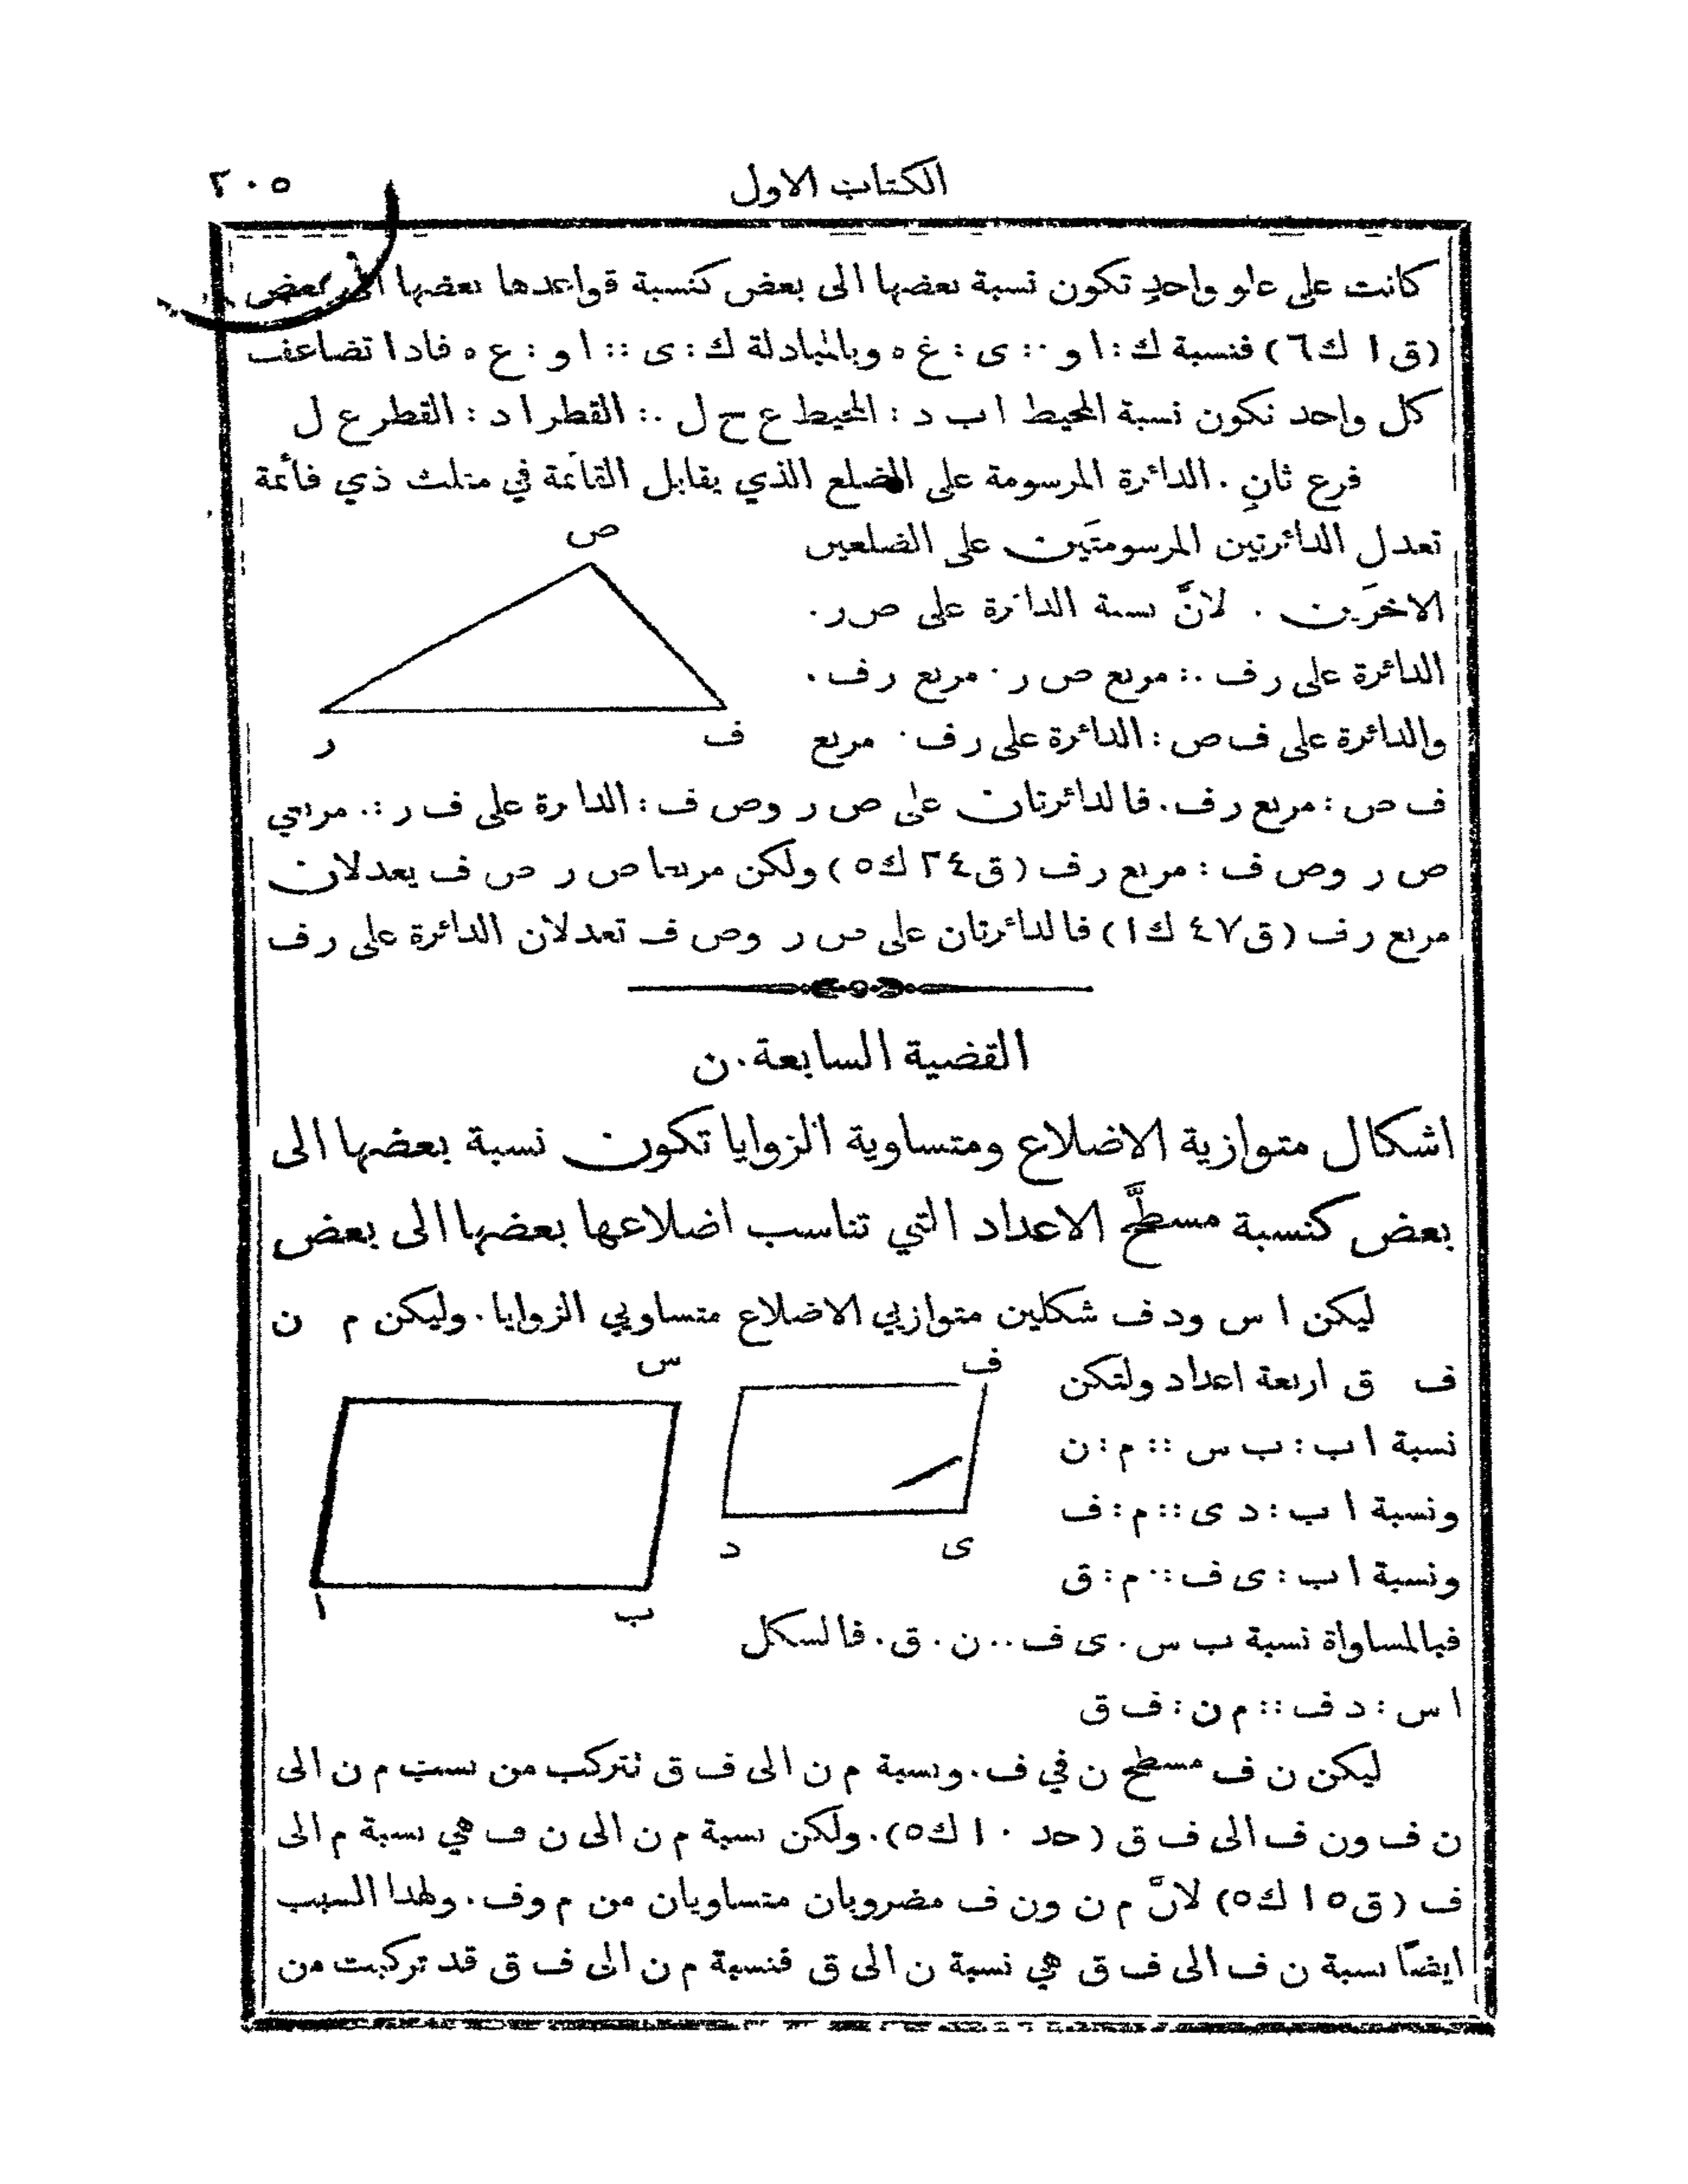 الكتاب الاول
٢٠٥
كانت على علو واحدٍ تكون نسبة بعضها الى بعض كنسبة قواعدها بعضها الى بعض
(ق ١ ك ٦) فنسبة ك : ا و :: ى : غ ه وبالمبادلة ك : ى :: ا و : ع ه فاذا تضاعف
كل واحد تكون نسبة المحيط ا ب د : المحيط ع ح ل :: القطر ا د : القطر ع ل
فرع ثانٍ . الدائرة المرسومة على الضلع الذي يقابل القائمة في مثلث ذي قائمة
تعدل الدائرتين المرسومتَين على الضلعين
الاخرَين . لانَّ نسبة الدائرة على ص ر :
الدائرة على ر ف :: مربع ص ر : مربع ر ف .
والدائرة على ف ص : الدائرة على ر ف : مربع
ف ص : مربع ر ف . فالدائرتان على ص ر وص ف : الدائرة على ف ر :: مربعي
ص ر وص ف : مربع ر ف (ق ٢٤ ك ٥) ولكن مربعا ص ر ص ف يعدلان
مربع ر ف (ق ٤٧ ك ١) فالدائرتان على ص ر وص ف تعدلان الدائرة على ر ف
ص
ر
ف
القضية السابعة . ن
اشكال متوازية الاضلاع ومتساوية الزوايا تكون نسبة بعضها الى
بعض كنسبة مسطَّح الاعداد التي تناسب اضلاعها بعضها الى بعض
ليكن ا س ود ف شكلين متوازيي الاضلاع متساويي الزوايا . وليكن م ن
ف ق اربعة اعداد ولتكن
نسبة ا ب : ب س :: م : ن
ونسبة ا ب : د ى :: م : ف
ونسبة ا ب : ى ف :: م : ق
فبالمساواة نسبة ب س : ى ف :: ن : ق . فالشكل
ا س : د ف :: م ن : ف ق
س
ف
ا
ب
د
ى
ليكن ن ف مسطح ن في ف . ونسبة م ن الى ف ق تتركب من نسبة م ن الى
ن ف ون ف الى ف ق (حد ١٠ ك ٥) . ولكن نسبة م ن الى ن ف هي نسبة م الى
ف (ق ١٥ ك ٥) لانَّ م ن ون ف مضروبان متساويان من م وف . ولهذا السبب
ايضًا نسبة ن ف الى ف ق هي نسبة ن الى ق فنسبة م ن الى ف ق قد تركبت من